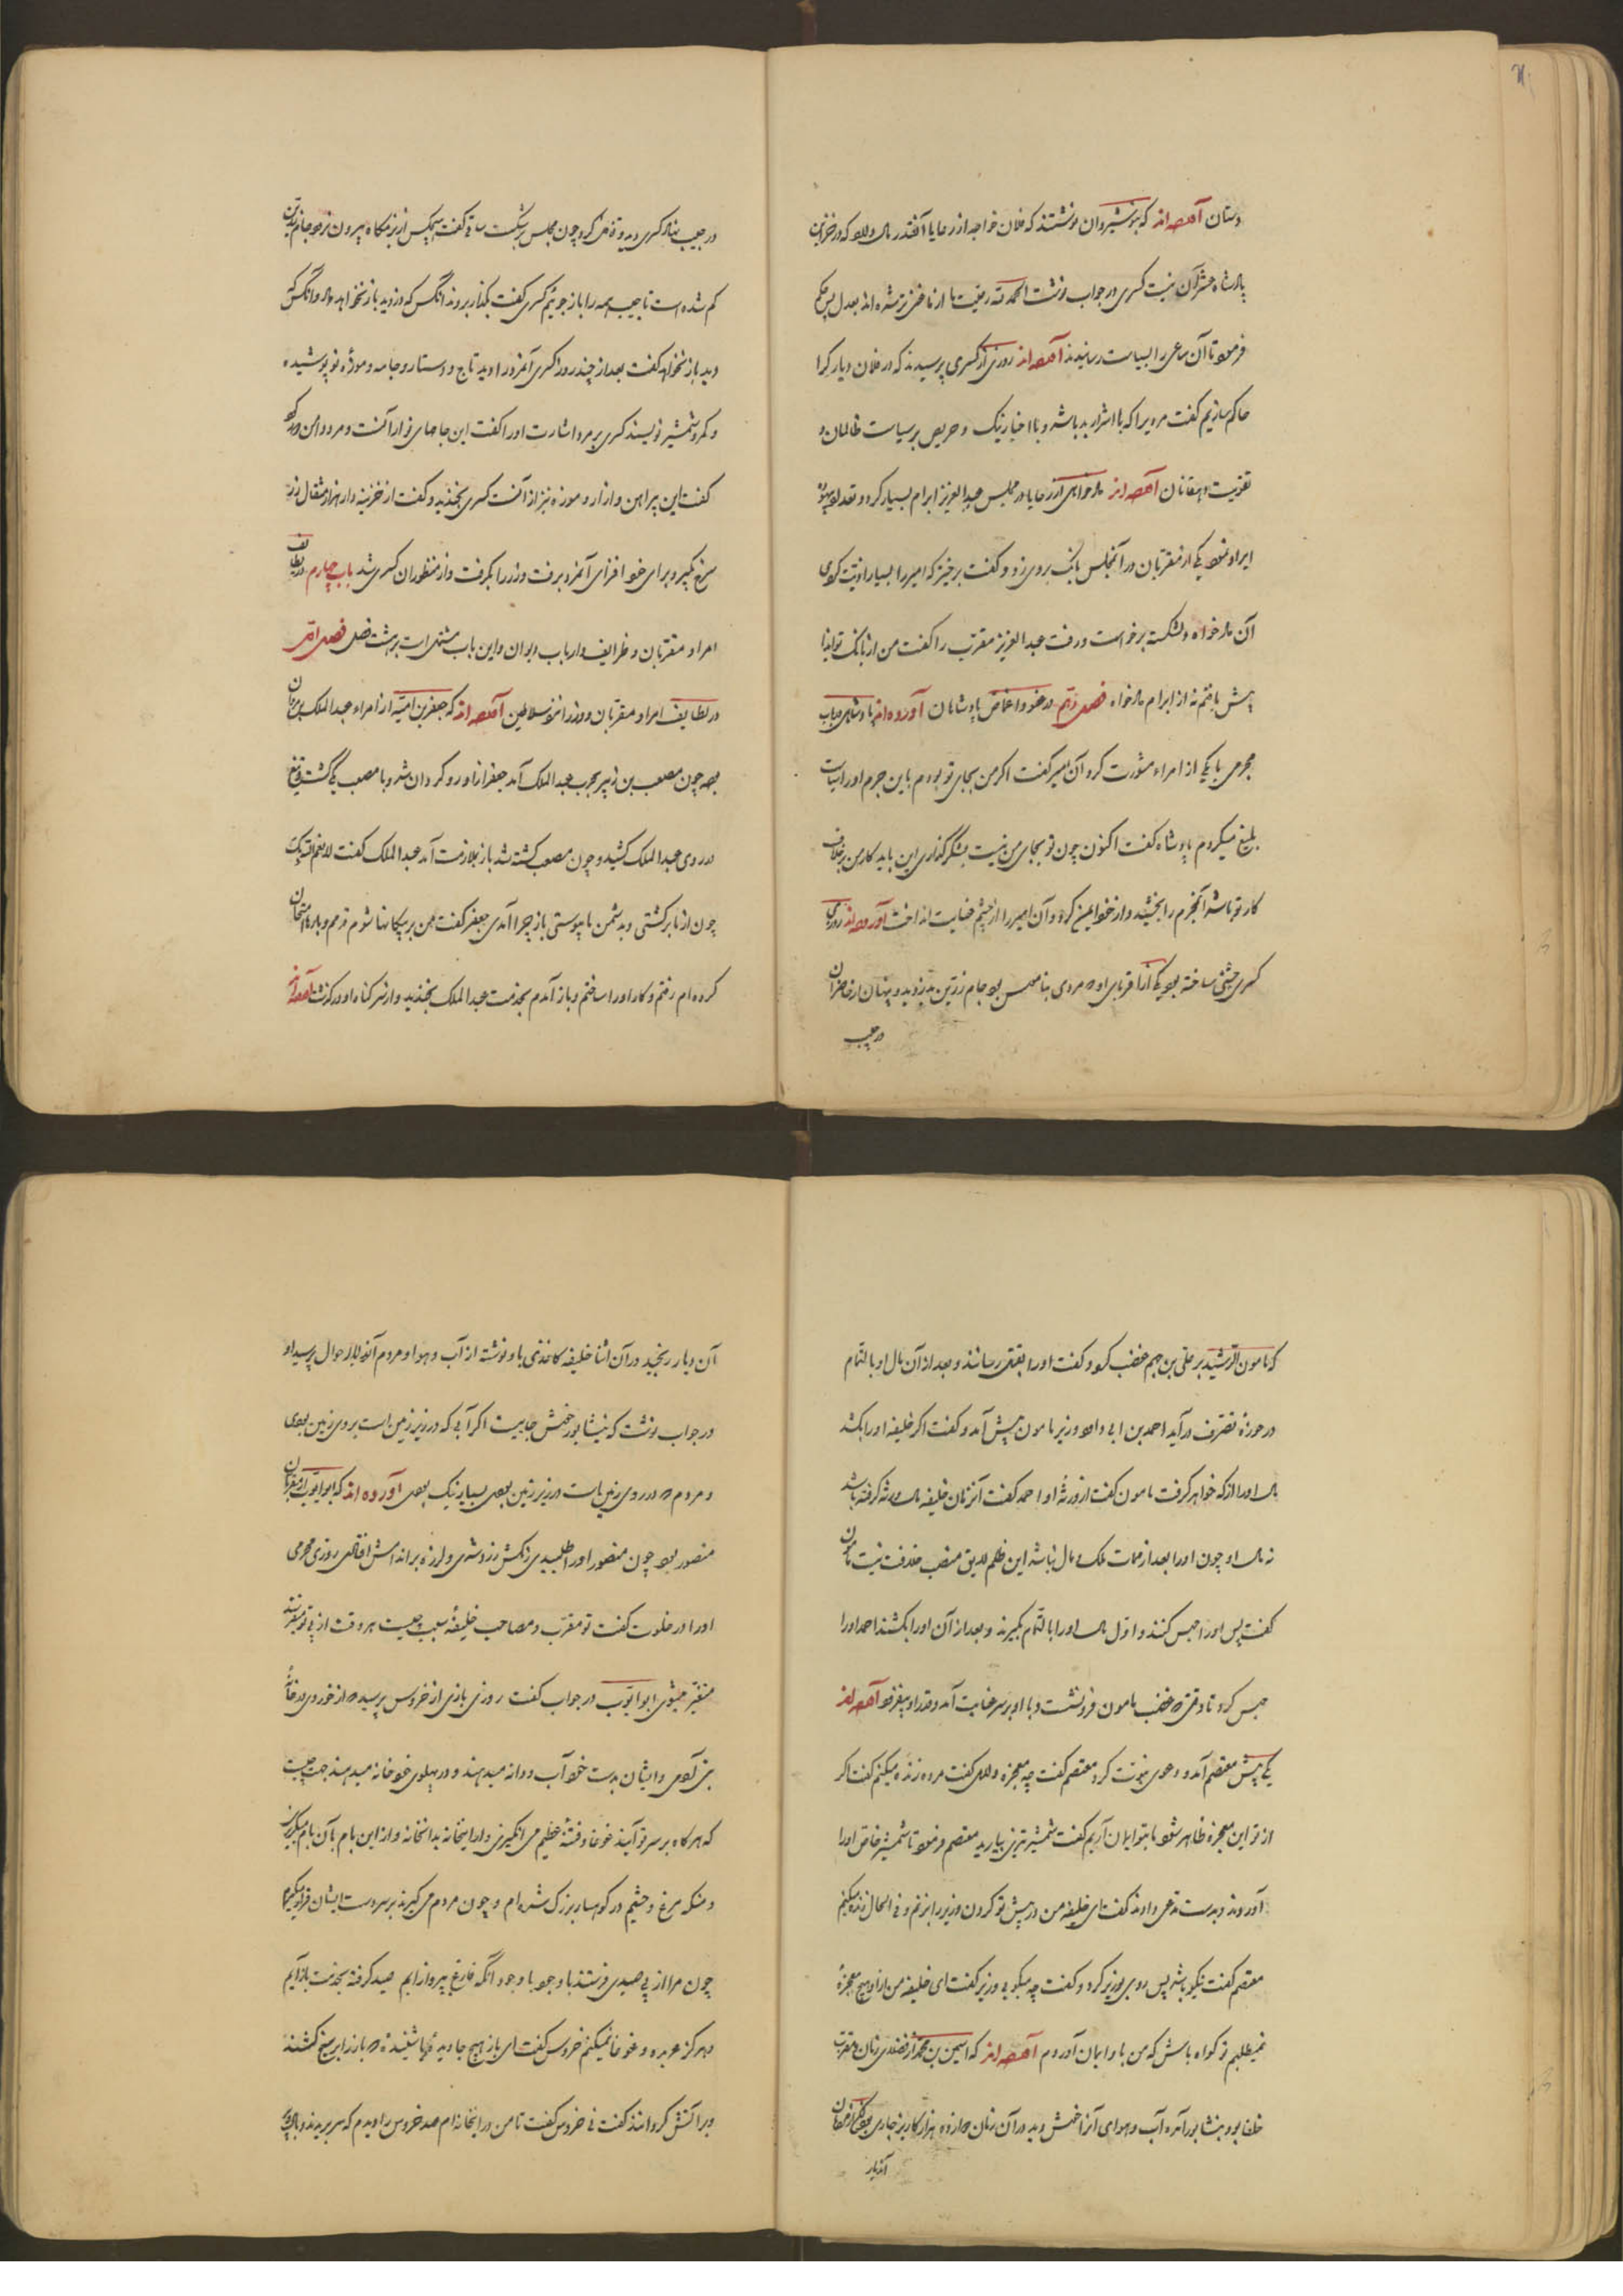 دستان آورده‌اند که بنوشیروان نوشتند که فلان خواجه از رعایا آنقدر مال دارد که در خزینه
پادشاه عشر آن نیست کسری در جواب نوشت الحمد لله رعیت ما از ما غنی‌تر شده‌اند بعدل پس حکم
فرمود تا آن ساعی را بسیاست رسانیدند آورده‌اند روزی از کسری پرسیدند که در فلان دیار کرا
حاکم سازیم گفت مردیرا که با اشرار بد باشد و با اخیار نیک و حریص بر سیاست ظالمان و
تقویت دهقانان آورده‌اند دادخواهی از رعایا در مجلس عبدالعزیز ابرام بسیار کرد و
ایراد نمود یکی از مقربان در آنمجلس بانگ بروی زد و گفت برخیز که امیر را بسیار اذیت کردی
آن دادخواه دلشکسته برخاست و رفت عبدالعزیز مقرب را گفت من از بانک تو ایذا
بیش یافتم نه از ابرام دادخواه فصل دهم در عفو و اغماض پادشاهان آورده‌اند پادشاهی در باب
مجرمی با یکی از امراء مشورت کرد آن امیر گفت اگر من بجای تو بودم باین جرم او را سیاست
بلیغ میکردم پادشاه گفت اکنون چون تو بجای من نیست بشکرگذاری این باید کار من بر خلاف
کار تو باشد آنمجرم را بخشید و از خود ایمن کرد و آن امیر را از چشم عنایت انداخت آورده‌اند روزی
کسری جشنی ساخته بود یکی از اقربای او که مردی بنام بود جام زرین بدزدید و پنهان از حاضران
در جیب
در جیب نهاد کسری دید و قاش نکرد چون مجلس برشکست ساقی گفت هیچکس از بزمگاه بیرون نرود جام زرین
گم شده است تا جیب همه را باز جوئیم کسری گفت بگذار بروند آنکس که دزدید باز نخواهد داد و آنکس که
دید باز نخواهد گفت بعد از چند روز کسری آنمرد را دید تاج و دستار و جامه و موزهٔ نو پوشیده
و کمر و شمشیر نو بسته کسری بر مرد اشارت او را گفت این جامهای نو از آنست و مرد دامن
گفت این پیراهن و ازار و موزه نیز از آنست کسری بخندید و گفت از خزینه‌دار هزار مثقال زر
سرخ بگیر و برای خود افزای آنمرد برفت و زر را بگرفت و از منظوران کسری شد باب چهارم در لطایف
امرا و مقربان و ظرایف ارباب دیوان و این باب مشتمل است بر هشت فصل فصل اول
در لطایف امرا و مقربان و وزرا نزد سلاطین آورده‌اند که جعفر بن امیه از امراء عبدالملک بن مروان
بود چون مصعب بن زبیر بحرب عبدالملک آمد جعفر از او روگردان شد و با مصعب یکی گشت و تیغ
در روی عبدالملک کشید و چون مصعب کشته شد باز بملازمت آمد عبدالملک گفت
چون از ما برگشتی و بدشمن ما پیوستی باز چرا آمدی جعفر گفت من بر بیگانها شوم ترم و بارها امتحان
کرده‌ام رفتم و کار او را ساختم و باز آمدم بخدمت عبدالملک بخندید و از سر گناه او درگذشت آورده‌اند
که مامون الرشید بر علی بن جهم غضب کرد و گفت او را بقتل رسانند و بعد از آن مال او بالتمام
در حوزهٔ تصرف درآید احمد بن ابی داود وزیر مامون پیش آمد و گفت اگر خلیفه او را بکشد
مال او را از که خواهد گرفت مامون گفت از ورثهٔ او احمد گفت آنزمان خلیفه مال ورثه گرفته باشد
نه مال او چون او را بعد از ممات ملک و مال نباشد این ظلم لایق منصب خلافت نیست مامون
گفت پس او را حبس کنند و اول مال او را بالتمام بگیرند و بعد از آن او را بکشند احمد او را
حبس کرد تا وقتی که غضب مامون فرو نشست و با او بر سر عنایت آمد و قدر او بیفزود آورده‌اند
یکی پیش معتصم آمد و دعوی نبوت کرد معتصم گفت چه معجزه داری گفت مرده زنده میکنم گفت اگر
از تو این معجزه ظاهر شود ما بتو ایمان آریم گفت شمشیر تیزی بیارید معتصم فرمود تا شمشیر خاص او را
آوردند و بدست مدعی دادند گفت ای خلیفه من در پیش تو گردن وزیر را بزنم و فی الحال زنده میکنم
معتصم گفت نیکو باشد پس روی بوزیر کرد و گفت چه میگویی وزیر گفت ای خلیفه من از او هیچ معجزهٔ
نمیطلبم تو گواه باش که من باو ایمان آوردم آورده‌اند که اسمعیل بن محمد از فضلای زمان و مقرب
خلفا بود بنشابور آمد و آب و هوای آنرا خوش دید در آن زمان دوازده هزار کاریز جاری بود
آندیار
آن دیار رنجید در آن اثنا خلیفه کاغذی باو نوشته از آب و هوا و مردم آنجا احوال پرسید او
در جواب نوشت که نیشابور خوش جاییست اگر آبی که در زیر زمین است بروی زمین بودی
و مردم که در روی زمین است در زیر زمین بودی بسیار نیک بودی آورده‌اند که ابو ایوب از مقربان
منصور بود چون منصور او را طلبیدی رنگش زرد شدی و لرزه بر اندامش افتادی روزی محرمی
او را در خلوت گفت تو مقرب و مصاحب خلیفهٔ سبب چیست هر وقت از پی تو میفرستد
متغیر میشوی ابو ایوب در جواب گفت روزی بازی از خروس پرسید که از خوردی در خانهٔ
بنی آدمی و ایشان بدست خود آب و دانه میدهند و در پهلوی خود خانه میدهند جهت چیست
که هرگاه بر سر تو آیند غوغا و فتنهٔ عظیم می‌انگیزی و از اینخانه بدانخانه و از این بام بآن بام میگریزی
و منکه مرغ وحشیم در کوهسار بزرگ شده‌ام و چون مردم می‌گیرند بر سر دست ایشان قرار میگیرم
چون مرا از پی صیدی فرستند با وجود آنکه فارغ بپرواز آیم صید گرفته بخدمت باز آیم
و هرگز عربده و غوغا نمیکنم خروس گفت ای باز هیچ جا دیدهٔ یا شنیدهٔ که باز را بر سیخ کشند
و بر آتش گردانند گفت نی خروس گفت تا من در اینخانه‌ام صد خروس را دیدم که سر بریدند و